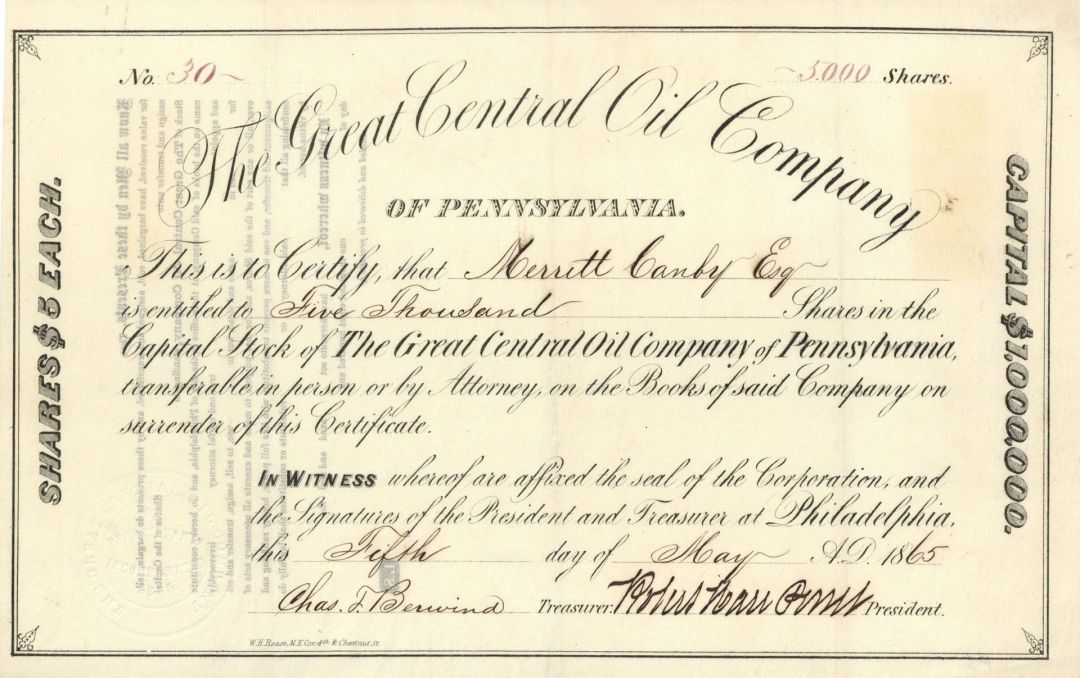 No. 30 5.000 Shares.
The Great Central Oil Company
OF PENNSYLVANIA.
SHARES $5 EACH.
CAPITAL $1,000,000.
This is to Certify, that Merritt Canby Esq
is entitled to Five Thousand Shares in the
Capital Stock of The Great Central Oil Company of Pennsylvania,
transferable in person or by Attorney, on the Books of said Company on
surrender of this Certificate.
IN WITNESS whereof are affixed the seal of the Corporation, and
the Signatures of the President and Treasurer at Philadelphia,
this Fifth day of May A.D. 1865
Chas. F. Berwind Treasurer. Robert Hare President.
W.H. Rease, N.E. Cor. 4th & Chestnut St.